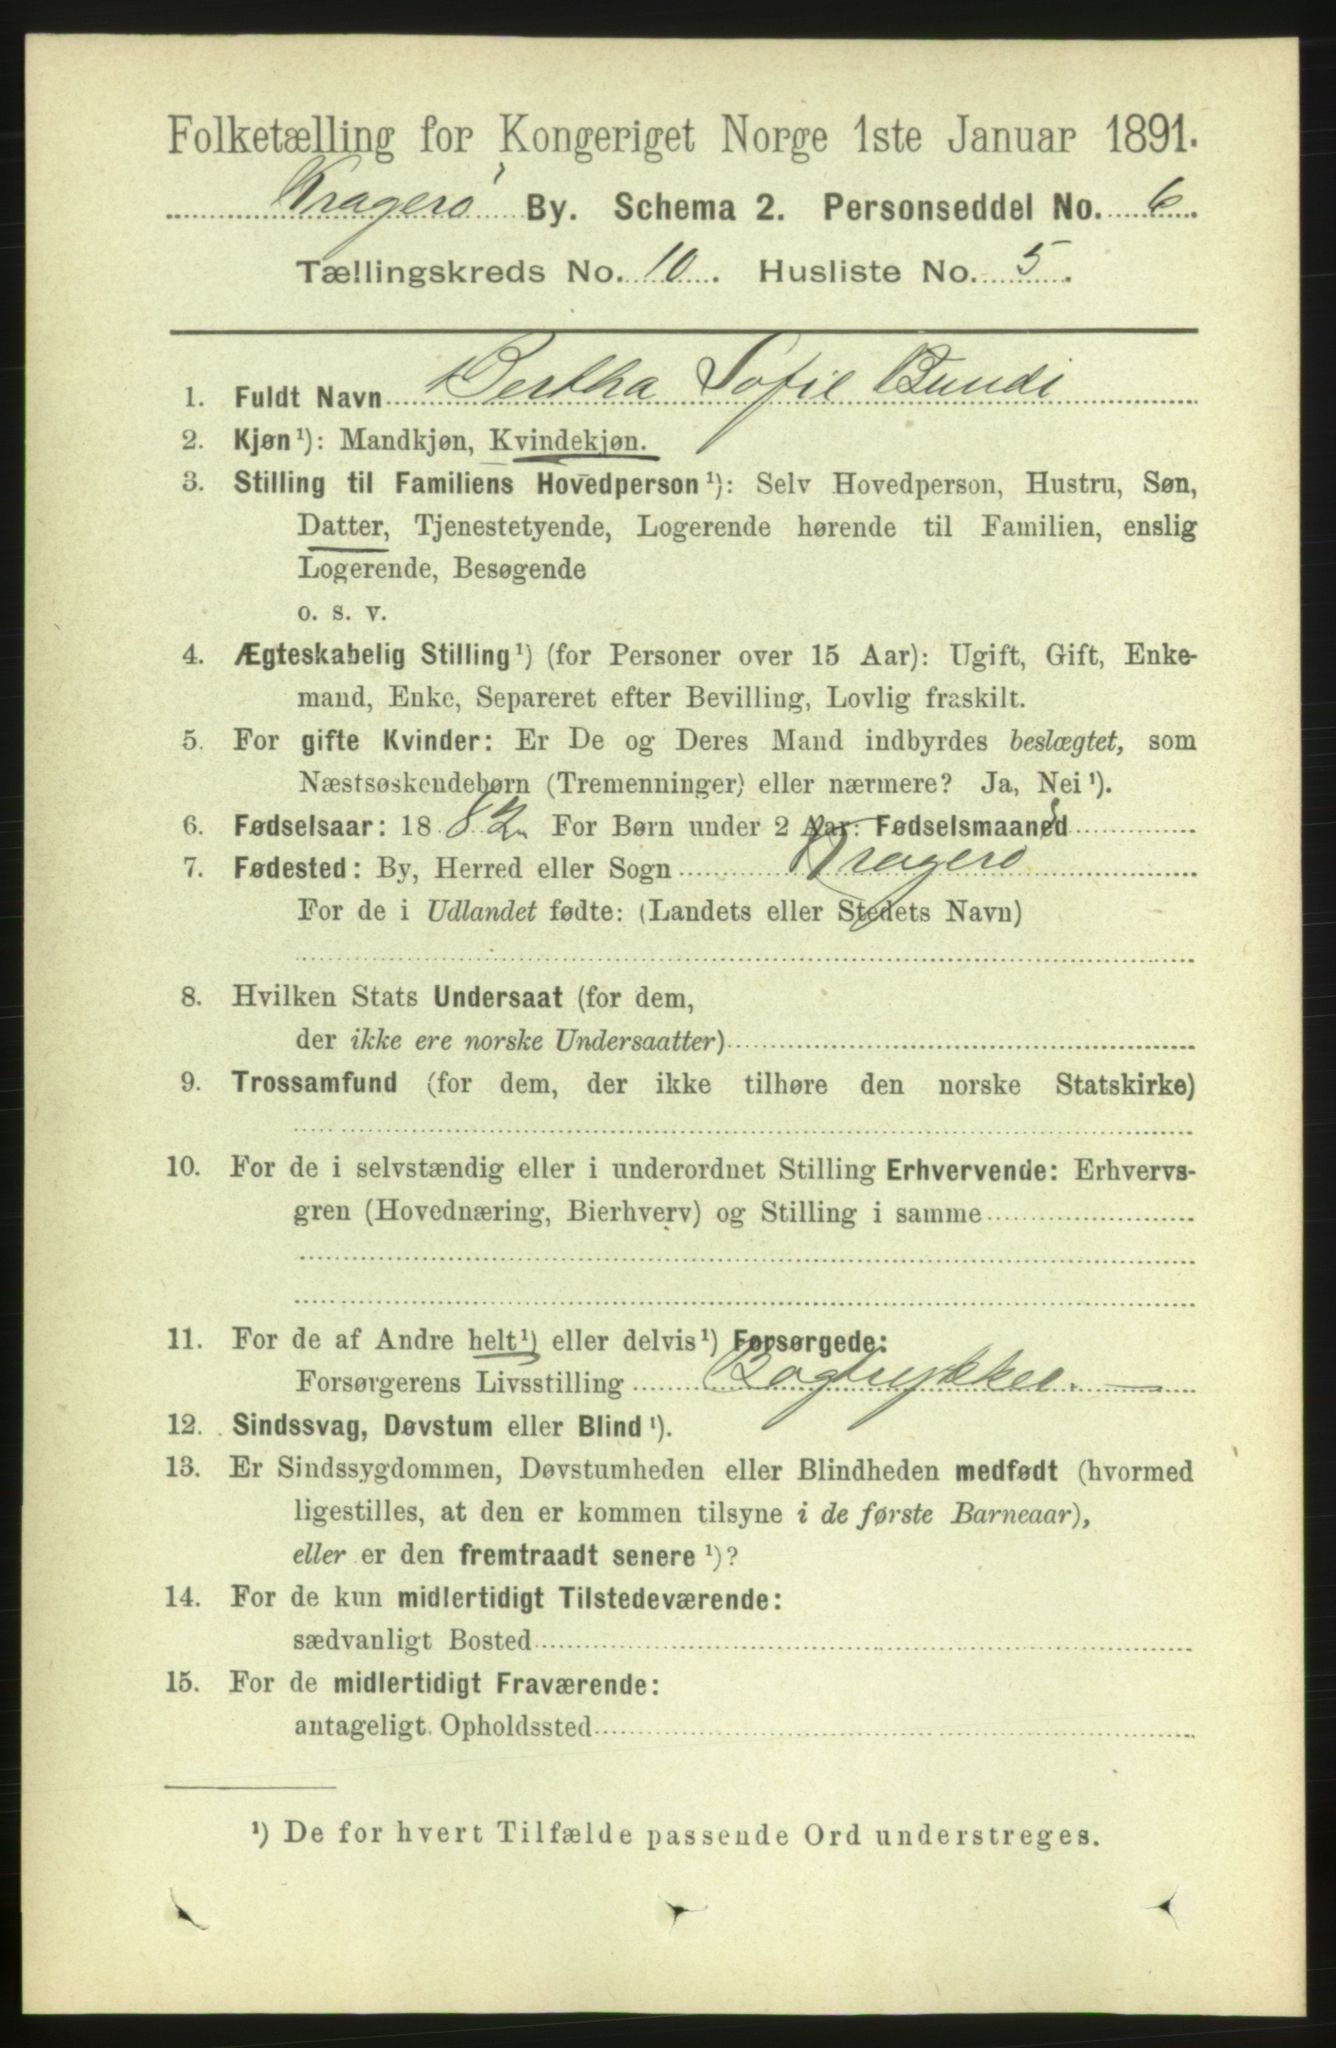 Folketælling for Kongeriget Norge 1ste Januar 1891.
Kragerø By. Schema 2. Personseddel No. 6.
Tællingskreds No. 10. Husliste No. 5.
1. Fuldt Navn Bertha Sofie Bundi
2. Kjøn¹): Mandkjøn, Kvindekjøn.
3. Stilling til Familiens Hovedperson¹): Selv Hovedperson, Hustru, Søn,
Datter, Tjenestetyende, Logerende hørende til Familien, enslig
Logerende, Besøgende
o. s. v.
4. Ægteskabelig Stilling¹) (for Personer over 15 Aar): Ugift, Gift, Enke-
mand, Enke, Separeret efter Bevilling, Lovlig fraskilt.
5. For gifte Kvinder: Er De og Deres Mand indbyrdes beslægtet, som
Næstsøskendebørn (Tremenninger) eller nærmere? Ja, Nei¹).
6. Fødselsaar: 1882 For Børn under 2 Aar: Fødselsmaaned
7. Fødested: By, Herred eller Sogn Kragerø
For de i Udlandet fødte: (Landets eller Stedets Navn)
8. Hvilken Stats Undersaat (for dem,
der ikke ere norske Undersaatter)
9. Trossamfund (for dem, der ikke tilhøre den norske Statskirke)
10. For de i selvstændig eller i underordnet Stilling Erhvervende: Erhvervs-
gren (Hovednæring, Bierhverv) og Stilling i samme
11. For de af Andre helt¹) eller delvis¹) Forsørgede:
Forsørgerens Livsstilling Bogtrykker.
12. Sindssvag, Døvstum eller Blind¹).
13. Er Sindssygdommen, Døvstumheden eller Blindheden medfødt (hvormed
ligestilles, at den er kommen tilsyne i de første Barneaar),
eller er den fremtraadt senere¹)?
14. For de kun midlertidigt Tilstedeværende:
sædvanligt Bosted
15. For de midlertidigt Fraværende:
antageligt Opholdssted
¹) De for hvert Tilfælde passende Ord understreges.